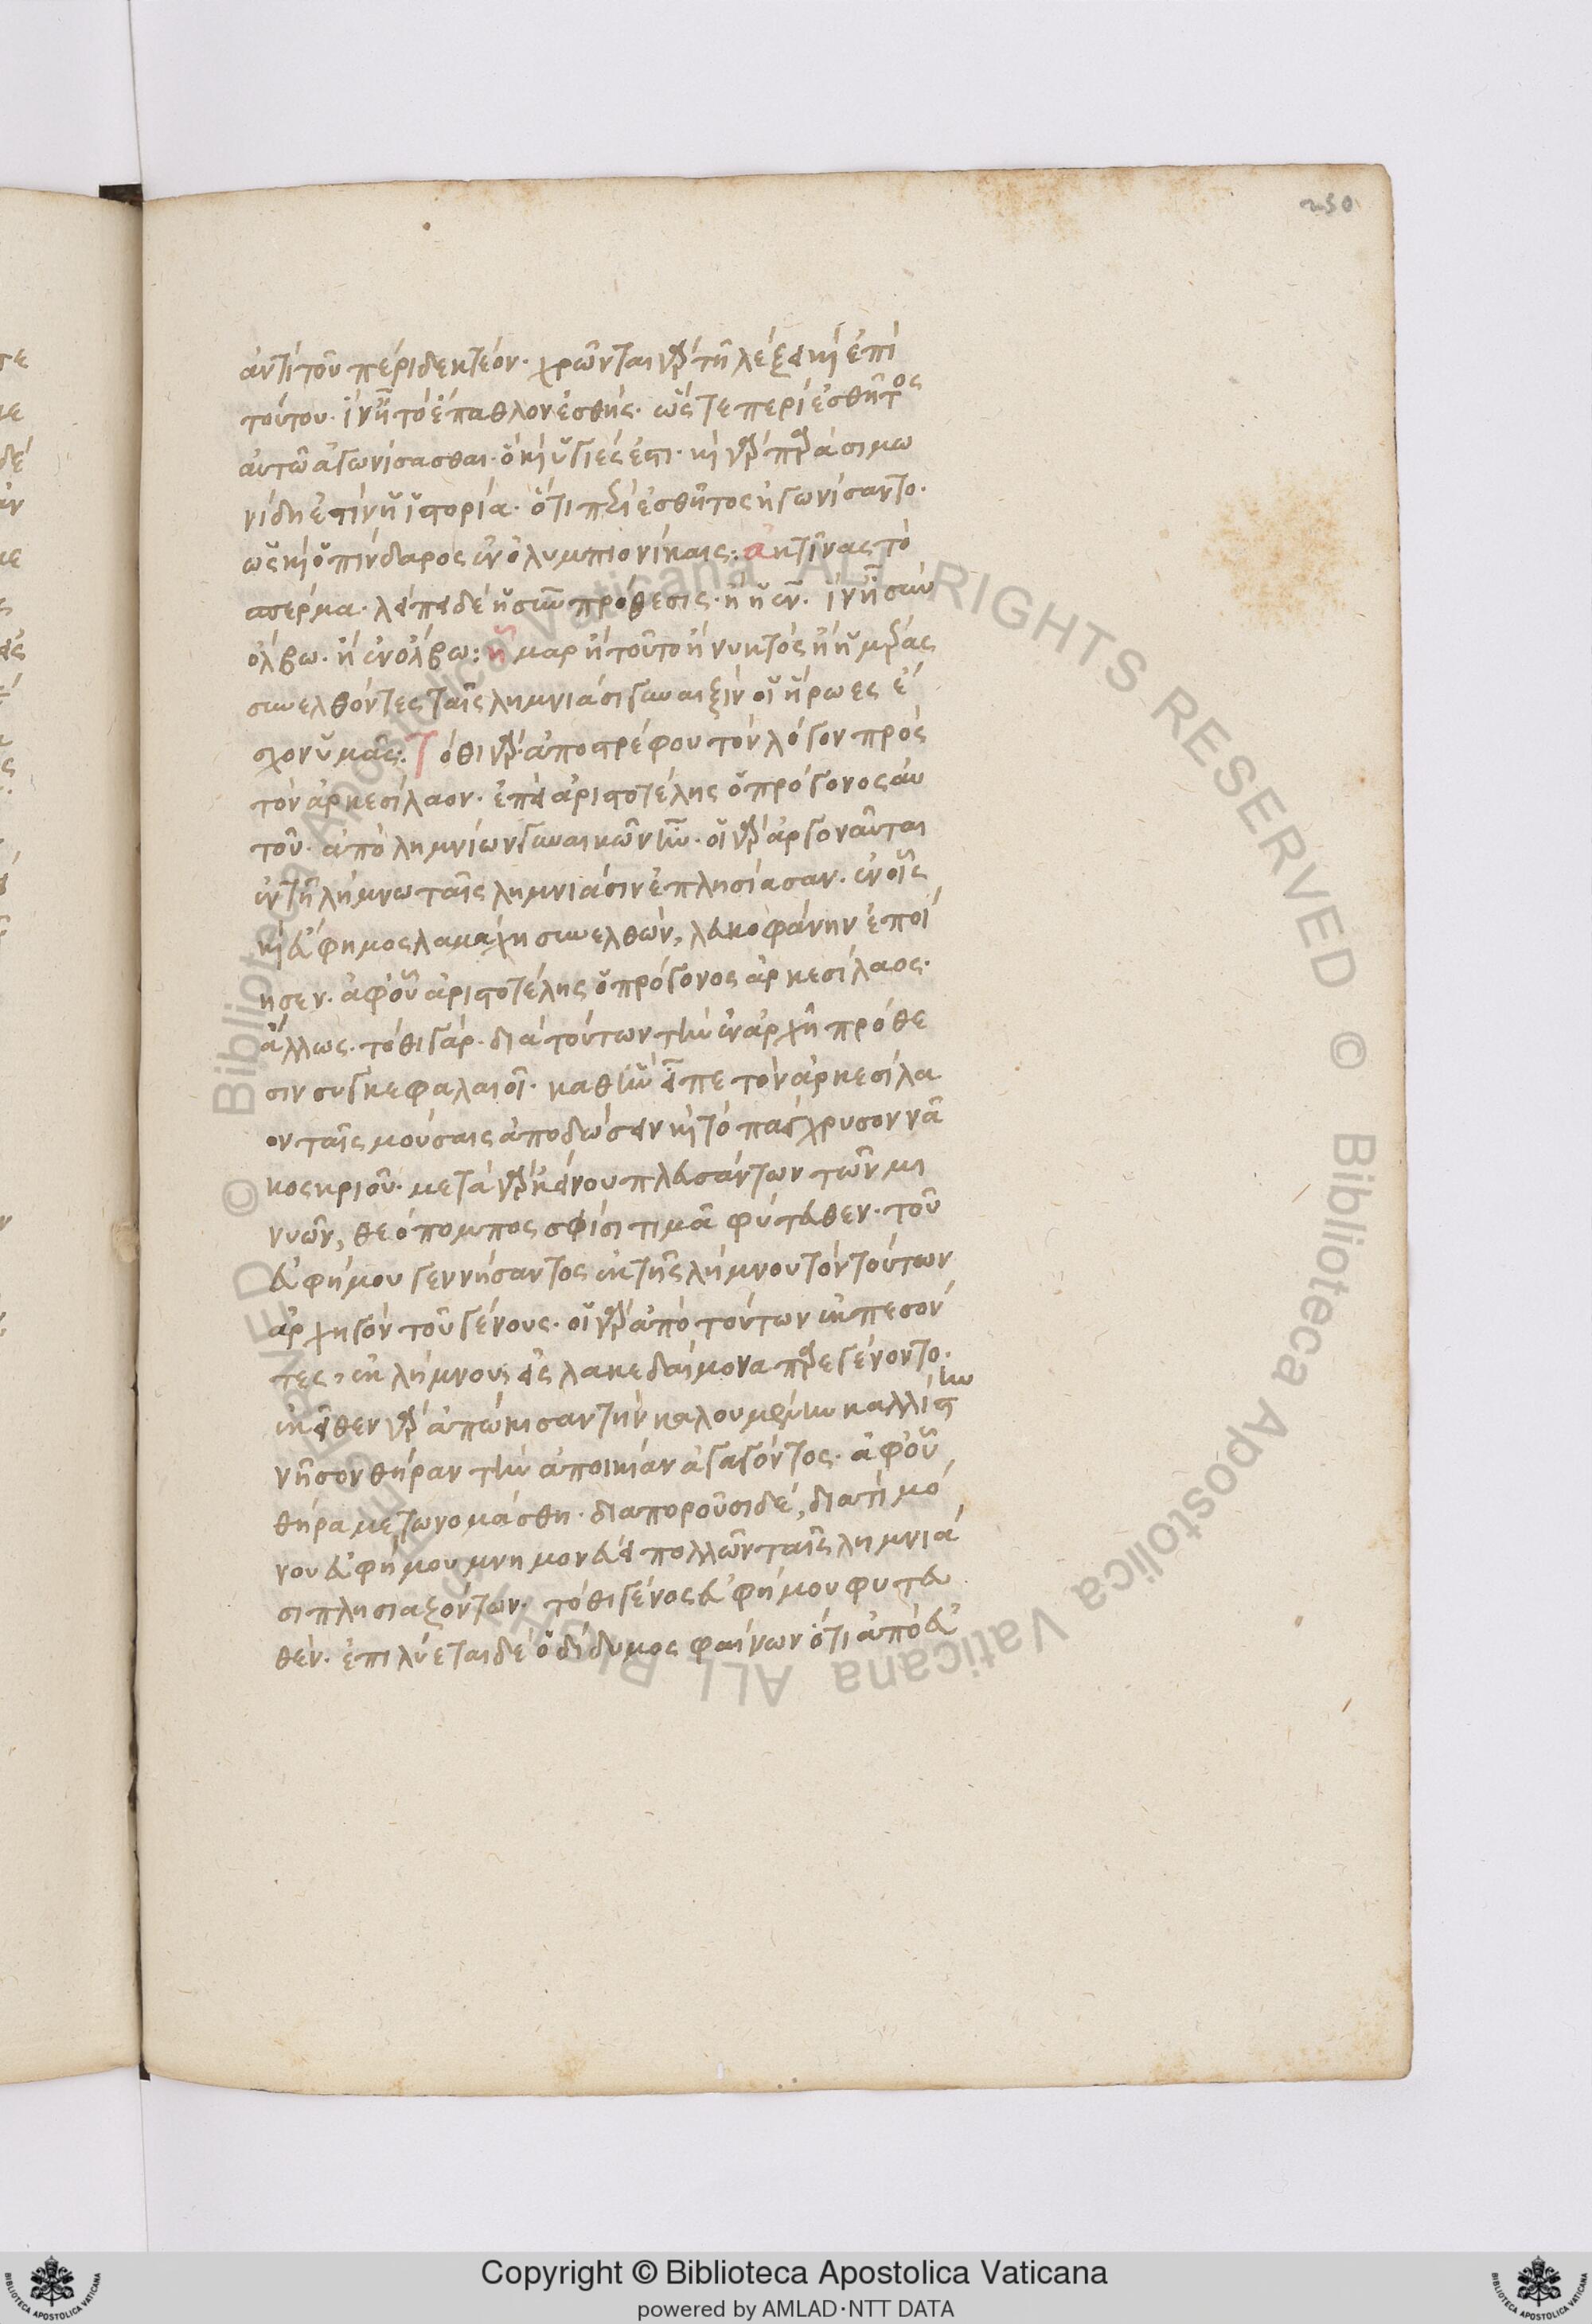 250
ἀντὶ τοῦ περὶ δεκτέον. χρῶνται γὰρ τῇ λέξει καὶ ἐπὶ
τούτου. ἵν' ᾖ τὸ ἔπαθλον ἐσθής. ὥστε περὶ ἐσθῆτος
αὐτῶ ἀγωνίσασθαι. ὃ καὶ ὑγιές ἐστι. καὶ γὰρ παρὰ σιμω
νίδη ἐστὶν ἡ ἱστορία. ὅτι περὶ ἐσθῆτος ἠγωνίσαντο.
ὡς καὶ ὁ πίνδαρος ἐν ὀλυμπιονίκαις: ἀκτῖνας τὸ
σπέρμα. λείπει δὲ ἡ σὺν πρόθεσις. ἢ ἡ ἐν. ἵν' ᾖ σὺν
ὄλβω. ἢ ἐν ὄλβω: ἦμαρ ἢ τοῦτο ἢ νυκτὸς ἢ ἡμέρας
συνελθόντες ταῖς λημνιάσι γυναιξὶν οἱ ἥρωες ἔ
σχον ὑμᾶς: τόθι γὰρ. ἀποστρέφου τὸν λόγον πρὸς
τὸν ἀρκεσίλαον. ἐπεὶ ἀριστοτέλης ὁ πρόγονος αὐ
τοῦ. ἀπὸ λημνίων γυναικῶν ἦν. οἱ γὰρ ἀργοναῦται
ἐν τῆ λήμνω ταῖς λημνιάσιν ἐπλησίασαν. ἐν οἷς
καὶ εὔφημος λαμάχη συνελθὼν, λευκοφάνην ἐποί
ησεν. ἀφ' οὗ ἀριστοτέλης ὁ πρόγονος ἀρκεσίλαος.
ἄλλως. τόθι γάρ. διὰ τούτων τὴν ἐν ἀρχῆ πρόθε
σιν συγκεφαλαιοῖ. καθ' ἣν εἶπε τὸν ἀρκεσίλα
ον ταῖς μούσαις ἀποδώσειν καὶ τὸ πάγχρυσον νᾶ
κος κριοῦ. μετὰ γὰρ κεῖνου πλευσάντων τῶν μι
νυῶν, θεόπομπος σφίσι τιμᾶ φύτευθεν. τοῦ
εὐφήμου γεννήσαντος ἐκ τῆς λήμνου τὸν τούτων
ἀρχηγὸν τοῦ γένους. οἱ γὰρ ἀπὸ τούτων ἐκπεσόν
τες, ἐκ λήμνου, εἰς λακεδαίμονα παρεγένοντο.
ἐκεῖθεν γὰρ ἀπώκισαν τὴν καλουμένην καλλίστην
νῆσον θήραν τὴν ἀποικίαν ἀγαγόντος. ἀφ' οὗ
θήρα μετωνομάσθη. διαποροῦσι δὲ, διατί μό
νου εὐφήμου μνημονεύει πολλῶν ταῖς λημνιά
σι πλησιαζόντων. τόθι γένος εὐφήμου φυτευ
θέν. ἐπιλύεται δὲ ὁ δίδυμος φαίνων ὅτι ἀπὸ εὐ
Copyright © Biblioteca Apostolica Vaticana
powered by AMLAD·NTT DATA